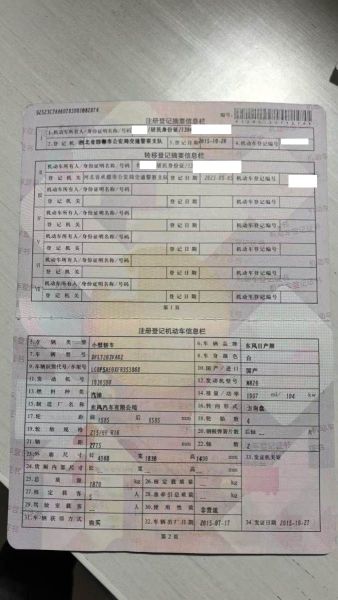 注册登记摘要信息栏
编号:
1.机动车所有人/身份证明名称/号码 /居民身份证/
2.登记机关 5.登记日期 2015-10-28 4.机动车登记编号
转移登记摘要信息栏
机动车所有人/身份证明名称/号码 /居民身份证/
登记机关 河北省承德市公安局交通警察支队 登记日期 机动车登记编号
机动车所有人/身份证明名称/号码
登记机关 登记日期 机动车登记编号
机动车所有人/身份证明名称/号码
登记机关 登记日期 机动车登记编号
机动车所有人/身份证明名称/号码
登记机关 登记日期 机动车登记编号
机动车所有人/身份证明名称/号码
登记机关 登记日期 机动车登记编号
第1页
注册登记机动车信息栏
5.车辆类型 小型轿车 6.车辆品牌 东风日产牌
7.车辆型号 8.车身颜色 白
9.车辆识别代号/车架号 10.国产/进口 国产
11.发动机号 12.发动机型号 MR20
13.燃料种类 汽油 14.排量/功率 1997 ml/ 104 kw
15.制造厂名称 东风汽车有限公司 16.转向形式 方向盘
17.轮距 前 1585 后 1585 mm 18.轮胎数 4
19.轮胎规格 215/60 R16 20.钢板弹簧片数 后轴 片
21.轴距 2775 mm 22.轴数 2
23.外廓尺寸 长 宽 1830 高 mm 33.发证机关章
24.货厢内部尺寸 长 宽 高 mm
25.总质量 1870 kg 26.核定载质量 kg
27.核定载客 5 人 28.准牵引总质量 kg
29.驾驶室载客 人 30.使用性质 非营运
31.车辆获得方式 购买 32.车辆出厂日期 2015-07-17 34.发证日期 2015-10-27
第2页